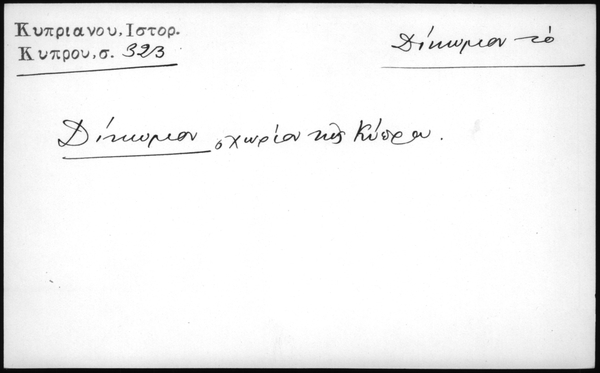 Κυπριανου, Ιστορ.
Κυπρου, σ. 323
Δίκωμον τὸ
Δίκωμον, χωρίον τῆς Κύπρου.